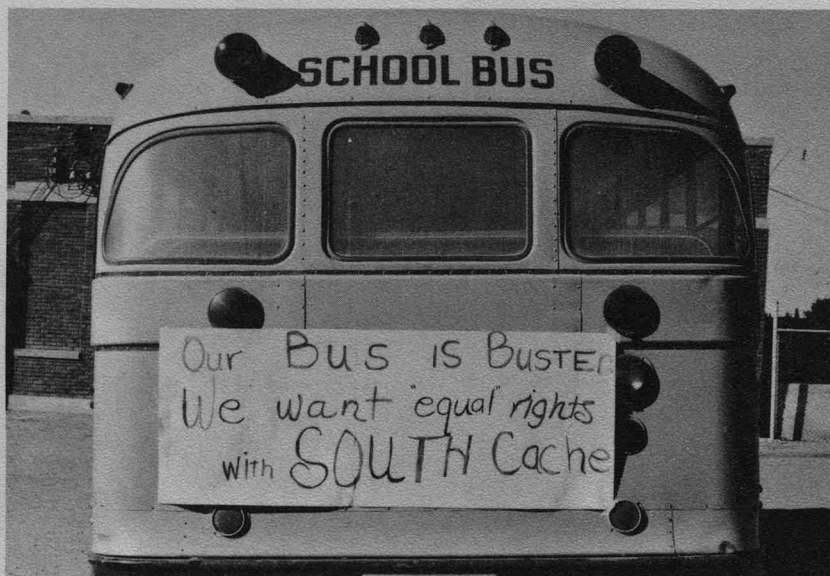 SCHOOL BUS
Our Bus is Busted
We want "equal" rights
with SOUTH Cache